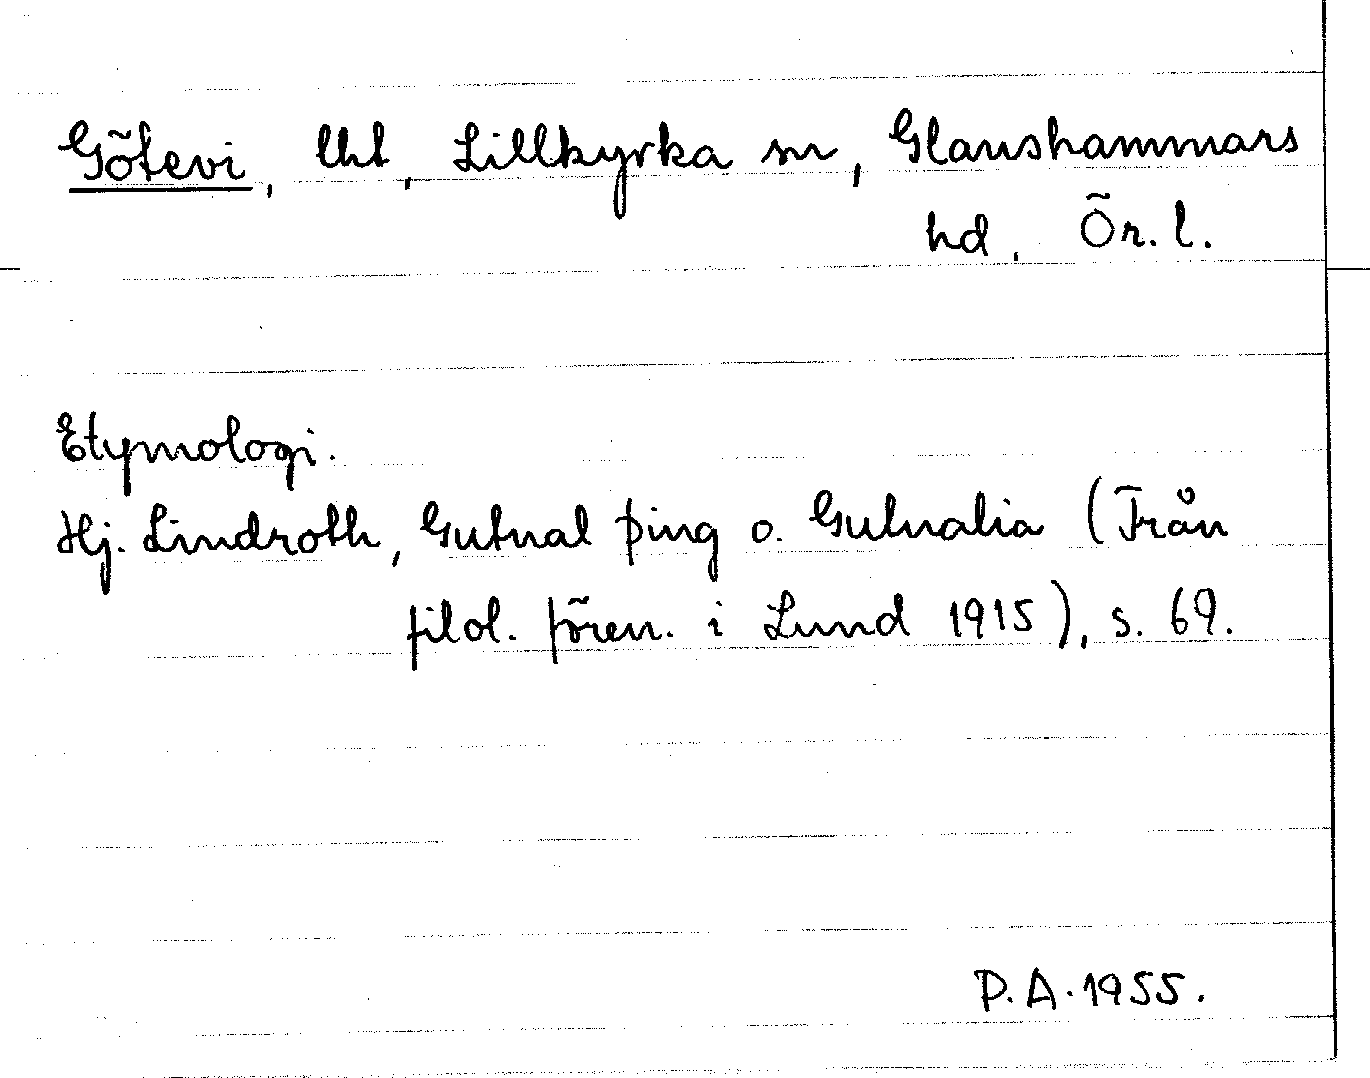 Götevi, Uht, Lillkyrka sn, Glanshammars
hd, Ör. l.
Etymologi.
Hj. Lindroth, Gutnal þing o. Gutnalia (Från
filol. fören. i Lund 1915), s. 69.
P. A. 1955.